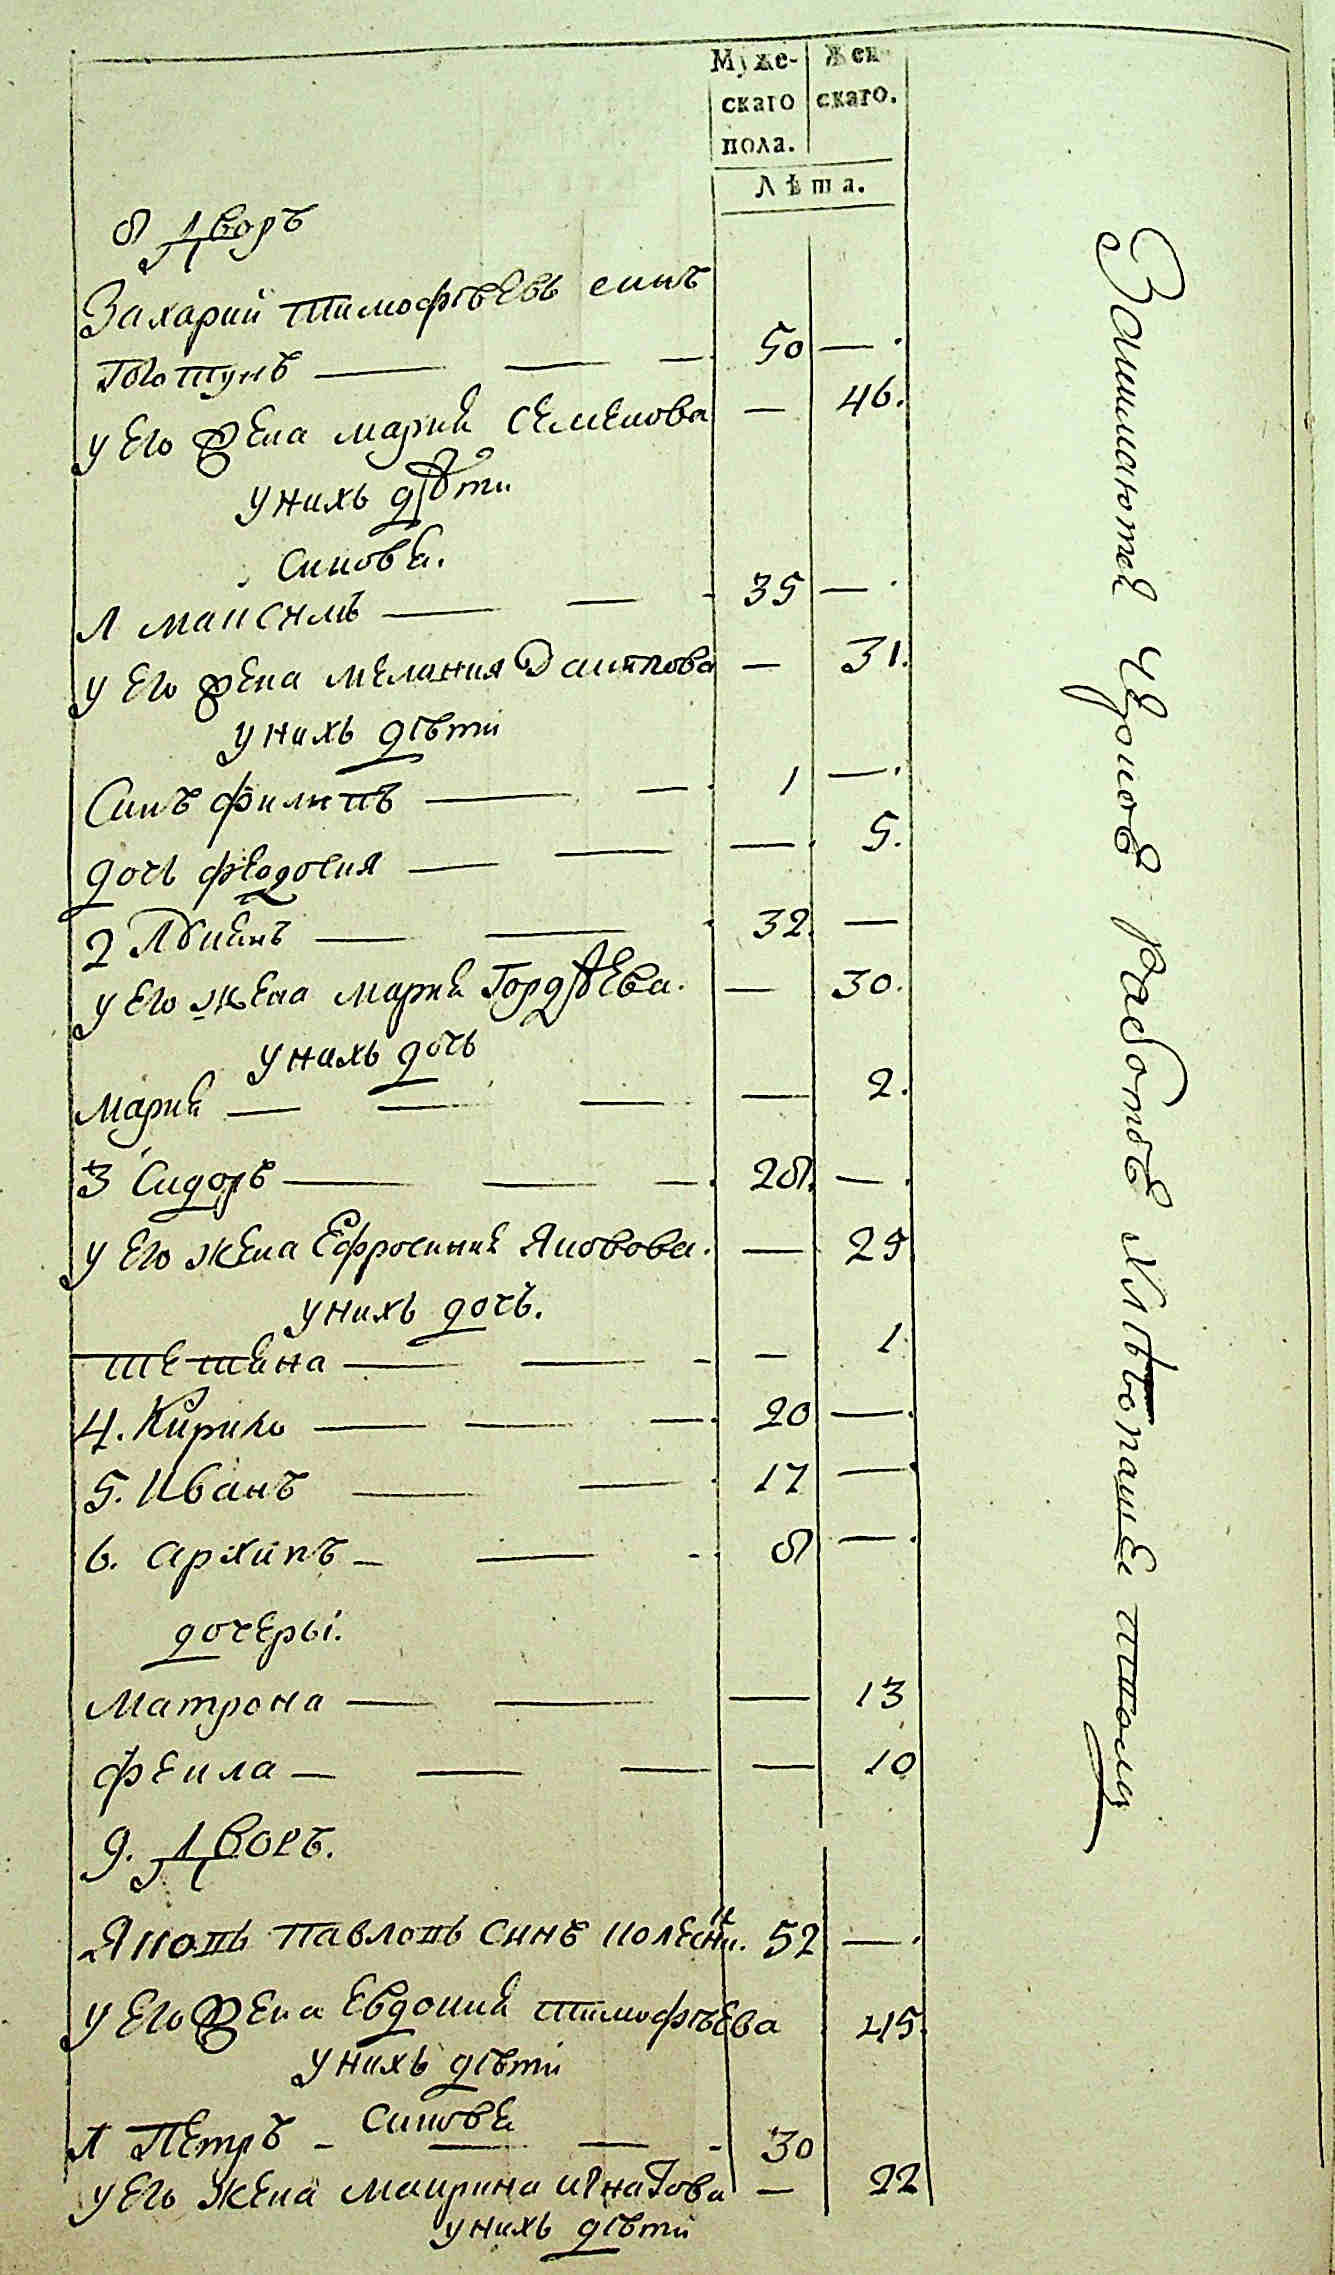 Муже-
скаго
пола.
Жен-
скаго.
Лѣта.
8 Дворъ
Захарий Тимофѣевъ синъ
50 — .
у его жена Марий Семенова — 46.
у нихъ дѣти
Синове.
1 Максимъ — — - 35 — .
у его жена Мелания Данилова — 31.
у нихъ дѣти
Синъ Филипъ — — . 1 — .
дочь Феодосия — — — . 5.
2 — — . 32. —
у его жена Марий Гордѣева. — 30.
у нихъ дочь
Марий — — — — 2.
3 Сидоръ — — — . 28. — .
у его жена Ефросиний Яковова. — 25
у нихъ дочь.
— — - — 1
4. Кирило — — — . 20 — .
5. Иванъ — — . 17 —
6. Архипъ — — - . 8 — .
дочеры.
Матрона — — — 13
Фекла — — — — 10
9. Дворъ.
Павловъ синъ 52 — .
у его жена Евдокий Тимофѣева 45.
у нихъ дѣти
Синове
1 Петръ - — — - 30
у его жена Маирина Игнатова — 22
у нихъ дѣти
Занимаются Чорноб работоб хлѣбопашеством